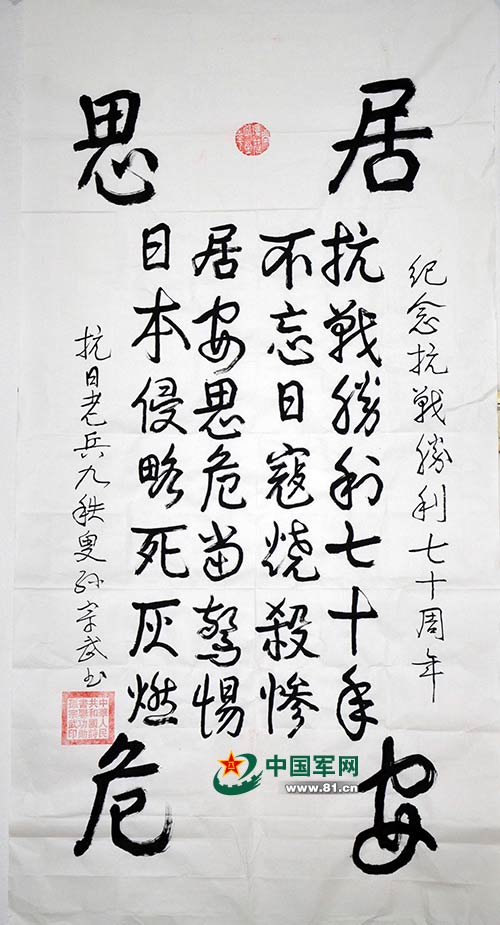 居安
思危
纪念抗戰勝利七十周年
抗戰勝利七十年
不忘日寇烧殺惨
居安思危当驚惕
日本侵略死灰燃
抗日老兵九秩叟孙宗武书
中国军网
www.81.cn